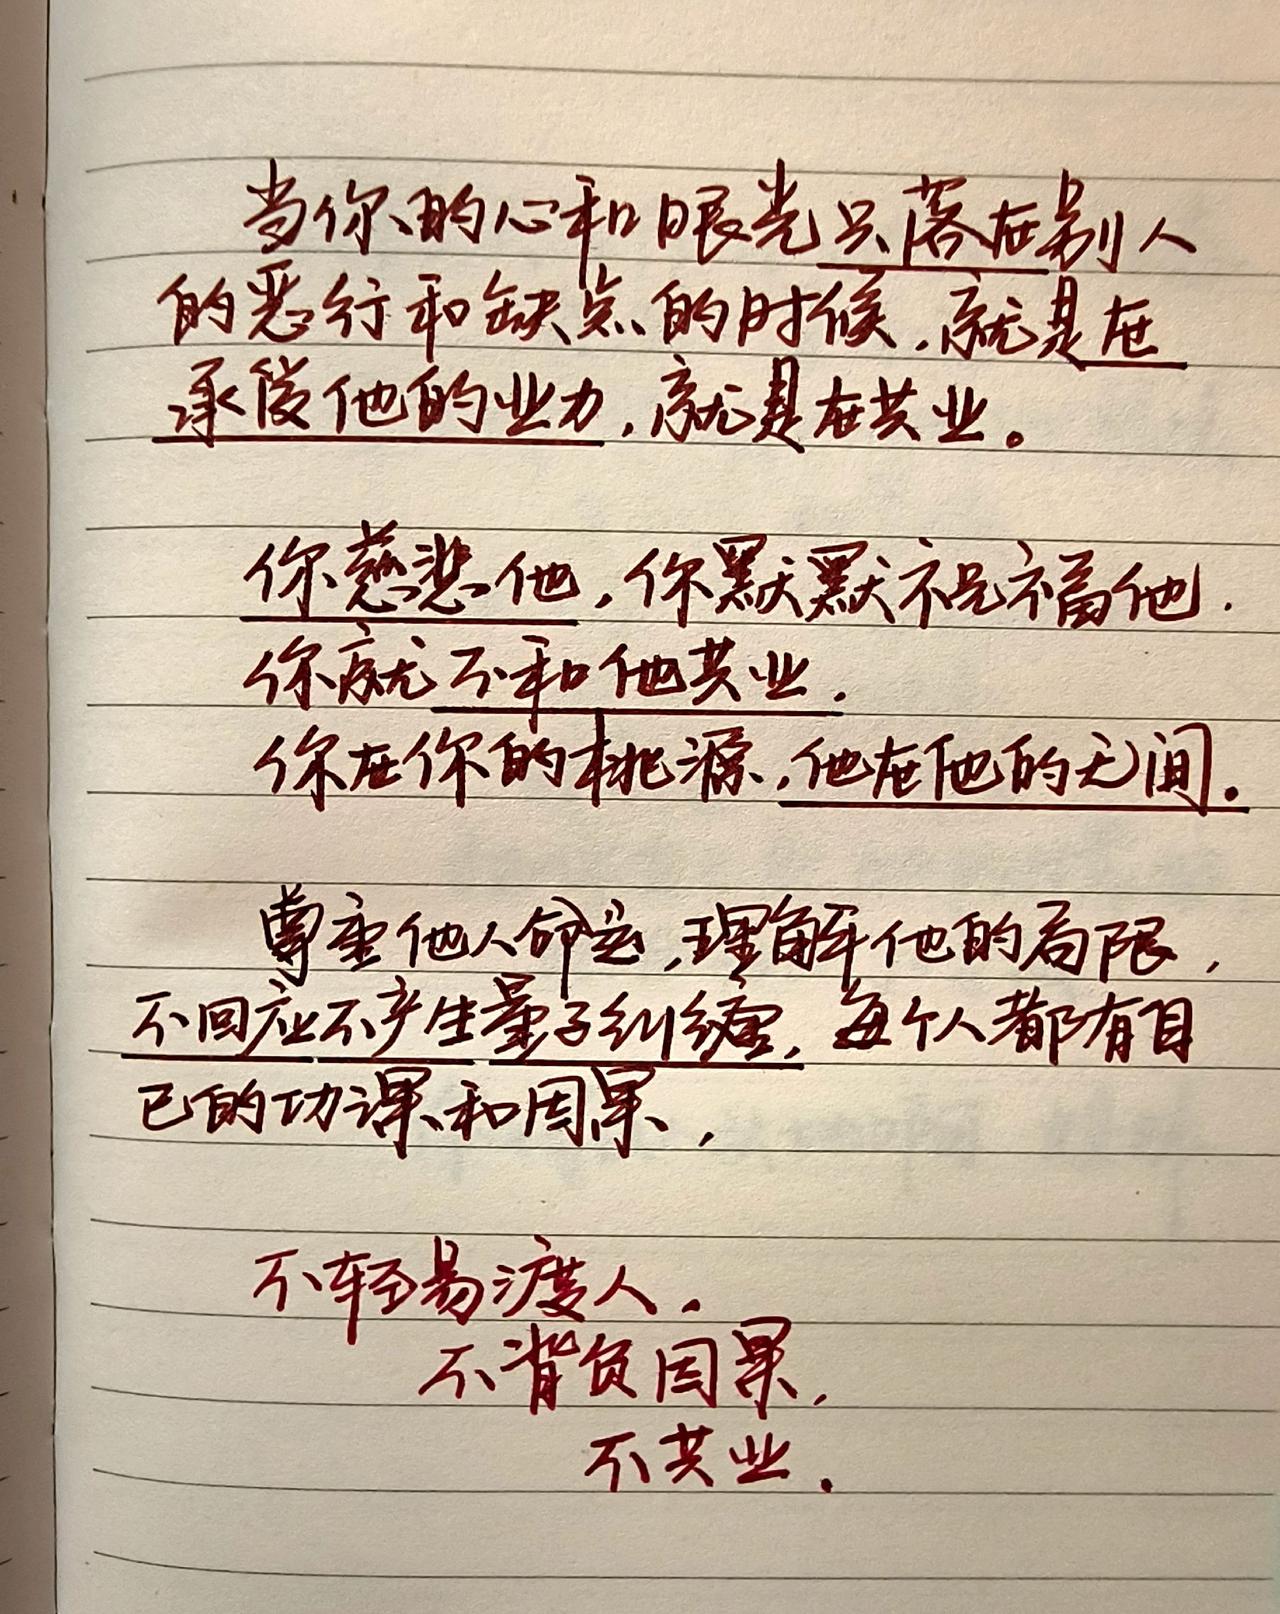 当你的心和眼光只落在别人
的恶行和缺点的时候,就是在
承接他的业力,就是在共业。
你慈悲他,你默默祝福他.
你就不和他共业.
你在你的桃源,他在他的无间.
尊重他人命运,理解他的局限,
不回应不产生量子纠缠,每个人都有自
己的功课和因果,
不轻易渡人.
不背负因果,
不共业.